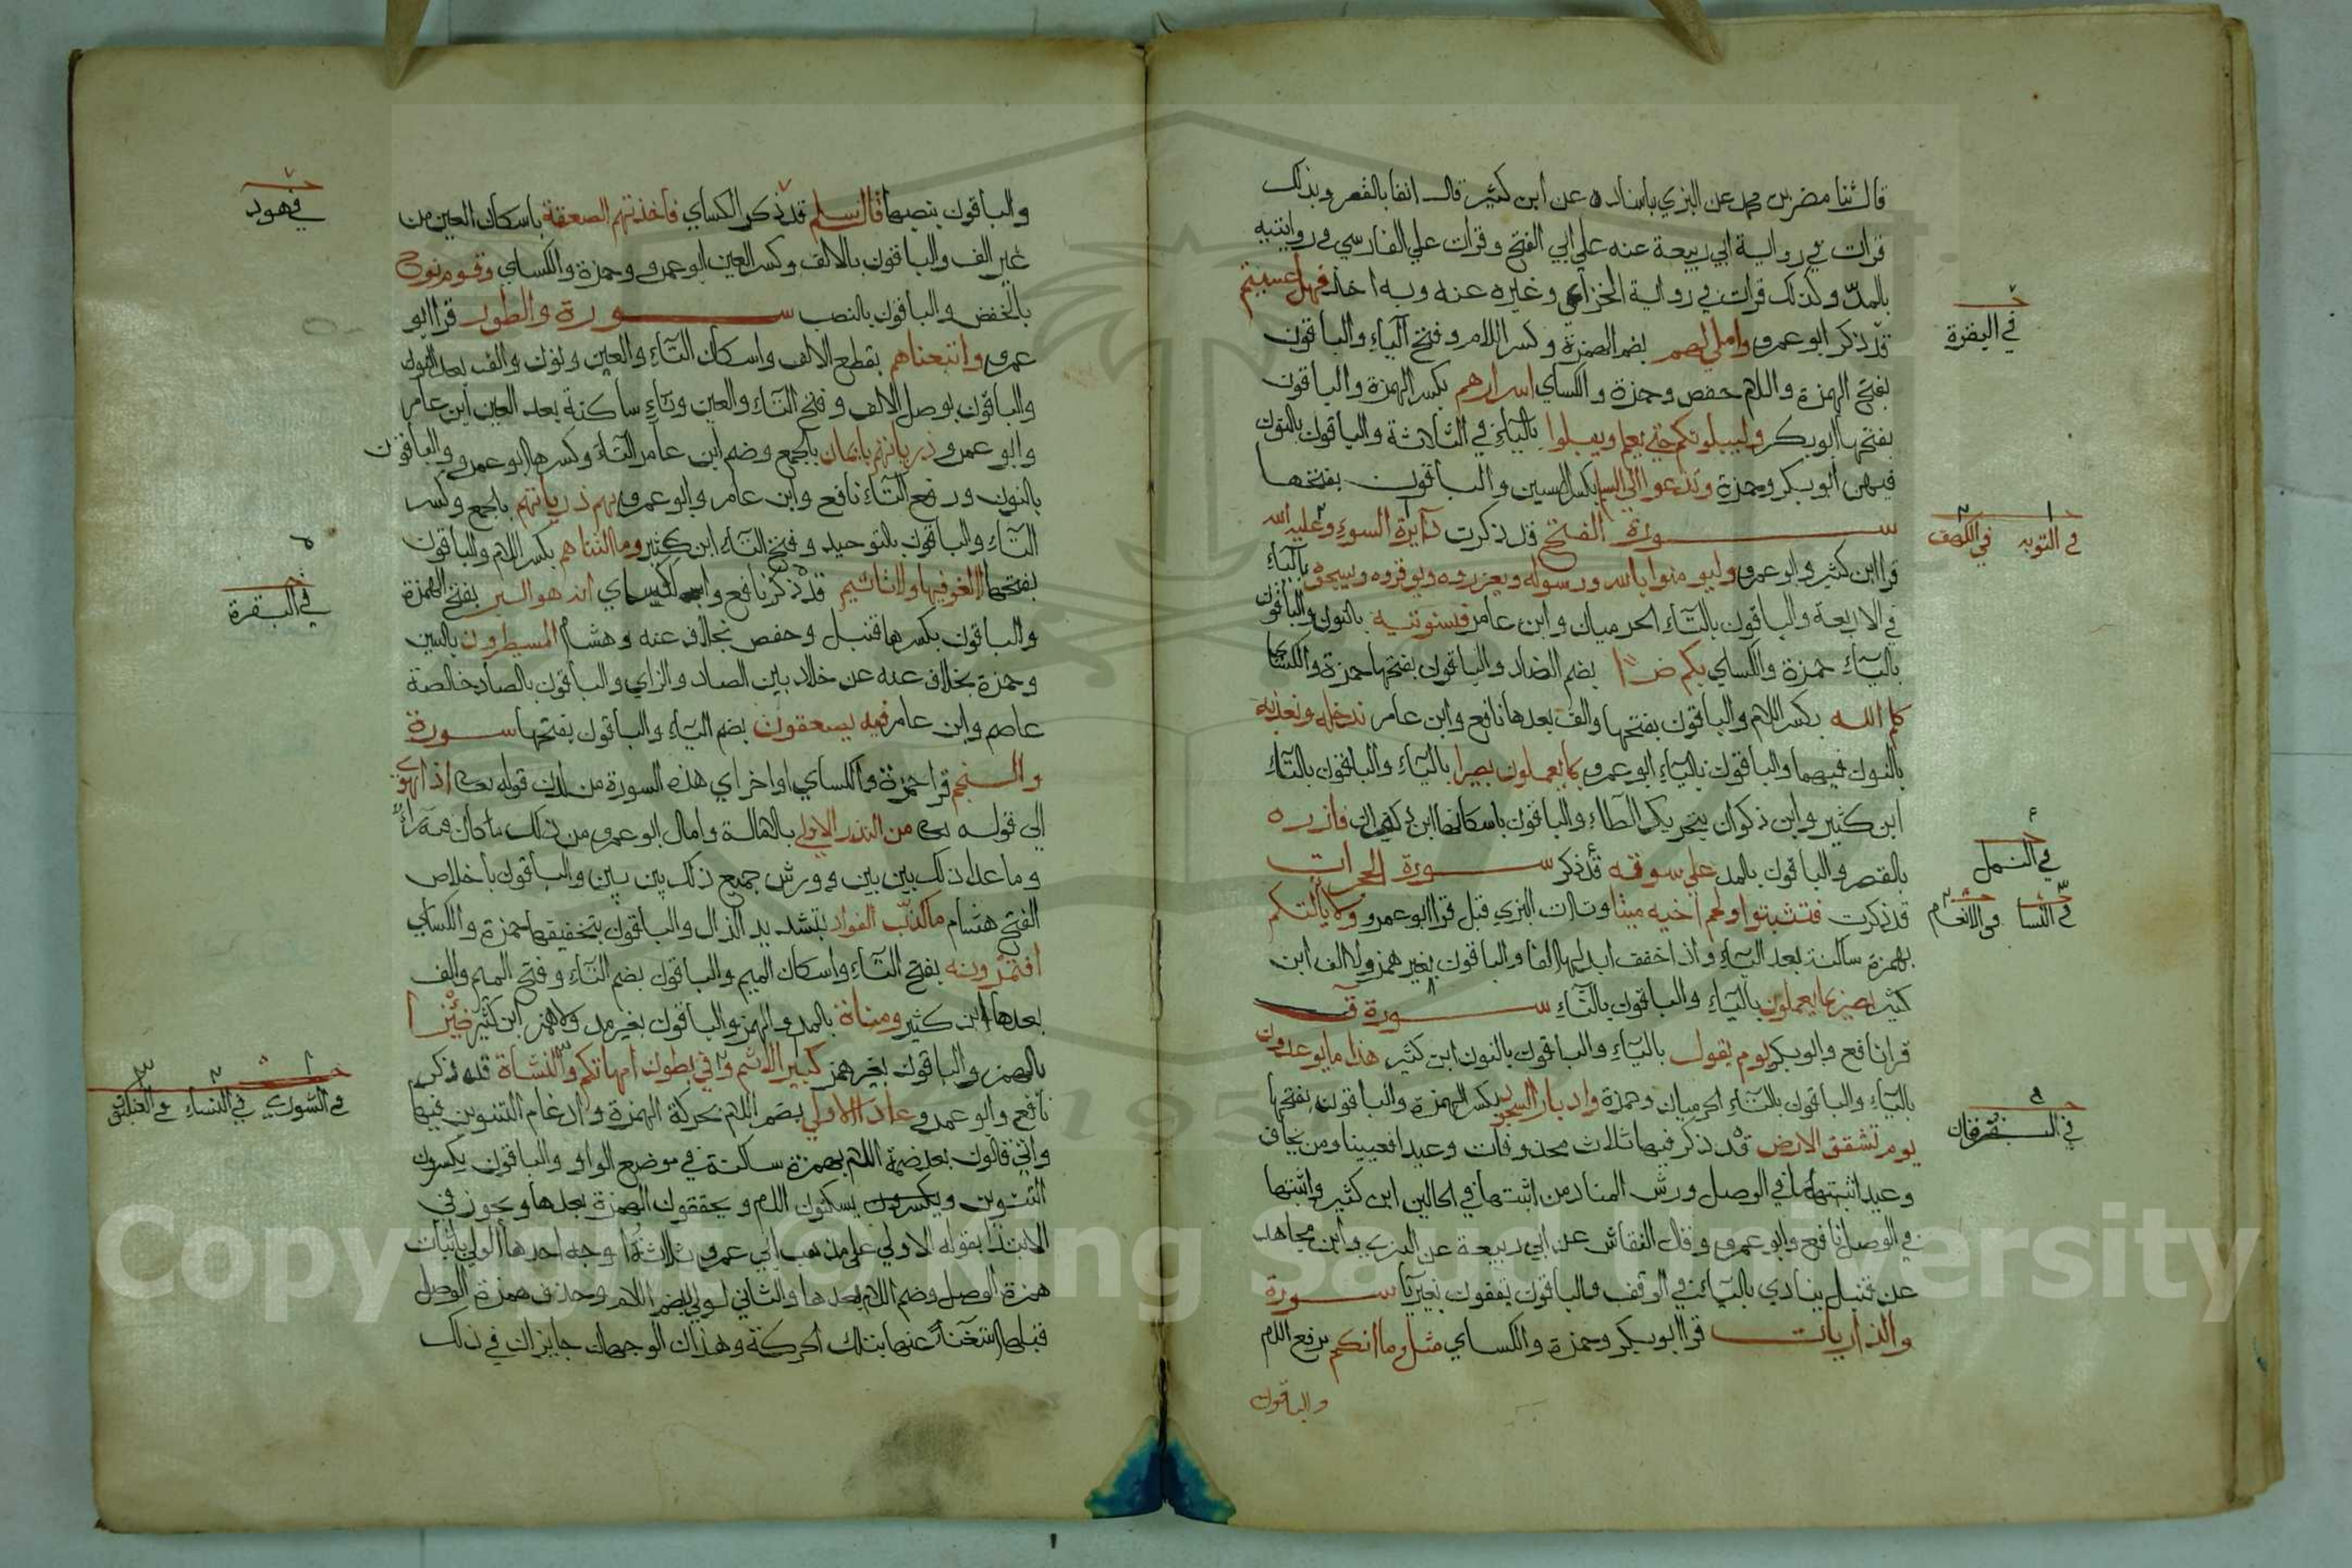 قال ثنا مضر بن محمد عن البزي باسناده عن ابن كثير قال انفا بالقصر وبذلك
قرات في رواية ابي ربيعة عنه علي ابي الفتح وقرات علي الفارسي في روايتيه
بالمد وكذلك قرات في رواية الخزاعي وغيره عنه وبه اخذ فهل عسيتم
قد ذكر ابو عمرو واملي لهم بضم الهمزة وكسر اللام وفتح الياء والباقون
بفتح الهمزة واللام حفص وحمزة والكساي اسرارهم بكسر الهمزة والباقون
بفتحها ابو بكر وليبلونكم حتي يعلم ويبلوا بالياء في الثلاثة والباقون بالنون
فيهن ابو بكر وحمزة وتدعوا الي السلم بكسر السين والباقون بفتحها
سورة الفتح قد ذكرت دايرة السوء وعليه الله
قرا ابن كثير وابو عمرو وليومنوا بالله ورسوله ويعزروه ويوقروه ويسبحوه بالياء
في الاربعة والباقون بالتاء الحرميان وابن عامر فسنوتيه بالنون والباقون
بالياء حمزة والكساي بكم ضرا بضم الضاد والباقون بفتحها حمزة والكساي
كلم الله بكسر اللام والباقون بفتحها والف بعدها نافع وابن عامر ندخله ونعذبه
بالنون فيهما والباقون بالياء ابو عمرو بما يعملون بصيرا بالياء والباقون بالتاء
ابن كثير وابن ذكوان بتحريك الطاء والباقون باسكانها ابن ذكوان فازره
بالقصر والباقون بالمد علي سوقه قد ذكر سورة الحجرات
قد ذكرت فتثبتوا ولحم اخيه ميتا وتاات البزي قبل قرا ابو عمرو ولا يألتكم
بهمزة ساكنة بعد الياء واذا خفف ابدلها الفا والباقون بغير همز ولا الف ابن
كثير بصير بما يعملون بالياء والباقون بالتاء سورة ق
قرا نافع وابو بكر يوم يقول بالياء والباقون بالنون ابن كثير هذا ما يوعدون
بالياء والباقون بالتاء الحرميان وحمزة وادبار السجود بكسر الهمزة والباقون بفتحها
يوم تشقق الارض قد ذكر فيها ثلاث محذوفات وعيد افعيينا ومن يخاف
وعيد اثبتهما في الوصل ورش المناد من اثبتها في الحالين ابن كثير واثبتها
في الوصل نافع وابو عمرو وقال النقاش عن ابي ربيعة عن البزي وابن مجاهد
عن قنبل ينادي بالياء في الوقف والباقون يقفون بغير يا سورة
والذاريات قرا ابو بكر وحمزة والكساي مثل ما انكم برفع اللام
والباقون
في البقرة
في التوبه في الكهف
في النمل
في النسا في الانعام
في الفرقان
والباقون بنصبها قال سلم قد ذكر الكساي فاخذتهم الصعقة باسكان العين من
غير الف والباقون بالالف وكسر العين ابو عمرو وحمزة والكساي وقوم نوح
بالخفض والباقون بالنصب سورة والطور قرا ابو
عمرو واتبعناهم بقطع الالف واسكان التاء والعين ونون والف بعد النون
والباقون بوصل الالف وفتح التاء والعين وتاء ساكنة بعد العين ابن عامر
وابو عمرو ذرياتهم بايمان بالجمع وضم ابن عامر التاء وكسرها ابو عمرو والباقون
بالنون ورفع التاء نافع وابن عامر وابو عمرو بهم ذرياتهم بالجمع وكسر
التاء والباقون بالتوحيد وفتح التاء ابن كثير وما التناهم بكسر اللام والباقون
بفتحها لا لغو فيها ولا تاثيم قد ذكر نافع والكساي انه هو البر بفتح الهمزة
والباقون بكسرها قنبل وحفص بخلاف عنه وهشام المسيطرون بالسين
وحمزة بخلاف عنه عن خلاد بين الصاد والزاي والباقون بالصاد خالصة
عاصم وابن عامر فيه يصعقون بضم الياء والباقون بفتحها سورة
والنجم قرا حمزة والكساي اواخر اي هذه السورة من لدن قوله تعا اذا هوي
الي قوله تعا من النذر الاولي بالامالة وامال ابو عمرو من ذلك ما كان فيه راء
وما عدا ذلك بين بين وورش جميع ذلك بين بين والباقون باخلاص
الفتح هشام ما كذب الفواد بتشديد الذال والباقون بتخفيفها حمزة والكساي
افتمرونه بفتح التاء واسكان الميم والباقون بضم التاء وفتح الميم والف
بعدها ابن كثير ومناة بالمد والهمز والباقون بغير مد ولا همز ابن كثير ضئزا
بالهمز والباقون بغير همز كبير الاثم وفي بطون امهاتكم والنشاة قد ذكر
نافع وابو عمرو عاد الاولي بضم اللام بحركة الهمزة وادغام التنوين فيها
واتي قالون بعد ضمة اللام بهمزة ساكنة في موضع الواو والباقون يكسرون
التنوين ويكسرون يسكنون اللام ويحققون الهمزة بعدها ويجوز في
الابتدا بقوله الاولي علي مذهب ابي عمرو ثلاثة اوجه احدها الولي باثبات
همزة الوصل وضم اللام بعدها والثاني لولي بضم اللام وحذف همزة الوصل
قبلها استغناء عنها بتلك الحركة وهذان الوجهان جايزان في ذلك
في هود
في البقرة
في الشوري في النساء في العنكبوت
Copyright © King Saud University
1957